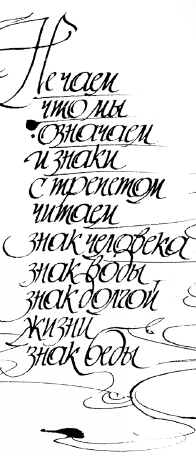 Не чаем
что мы
означаем
и знаки
с трепетом
читаем
знак человека
знак воды
знак долгой
жизни
знак беды